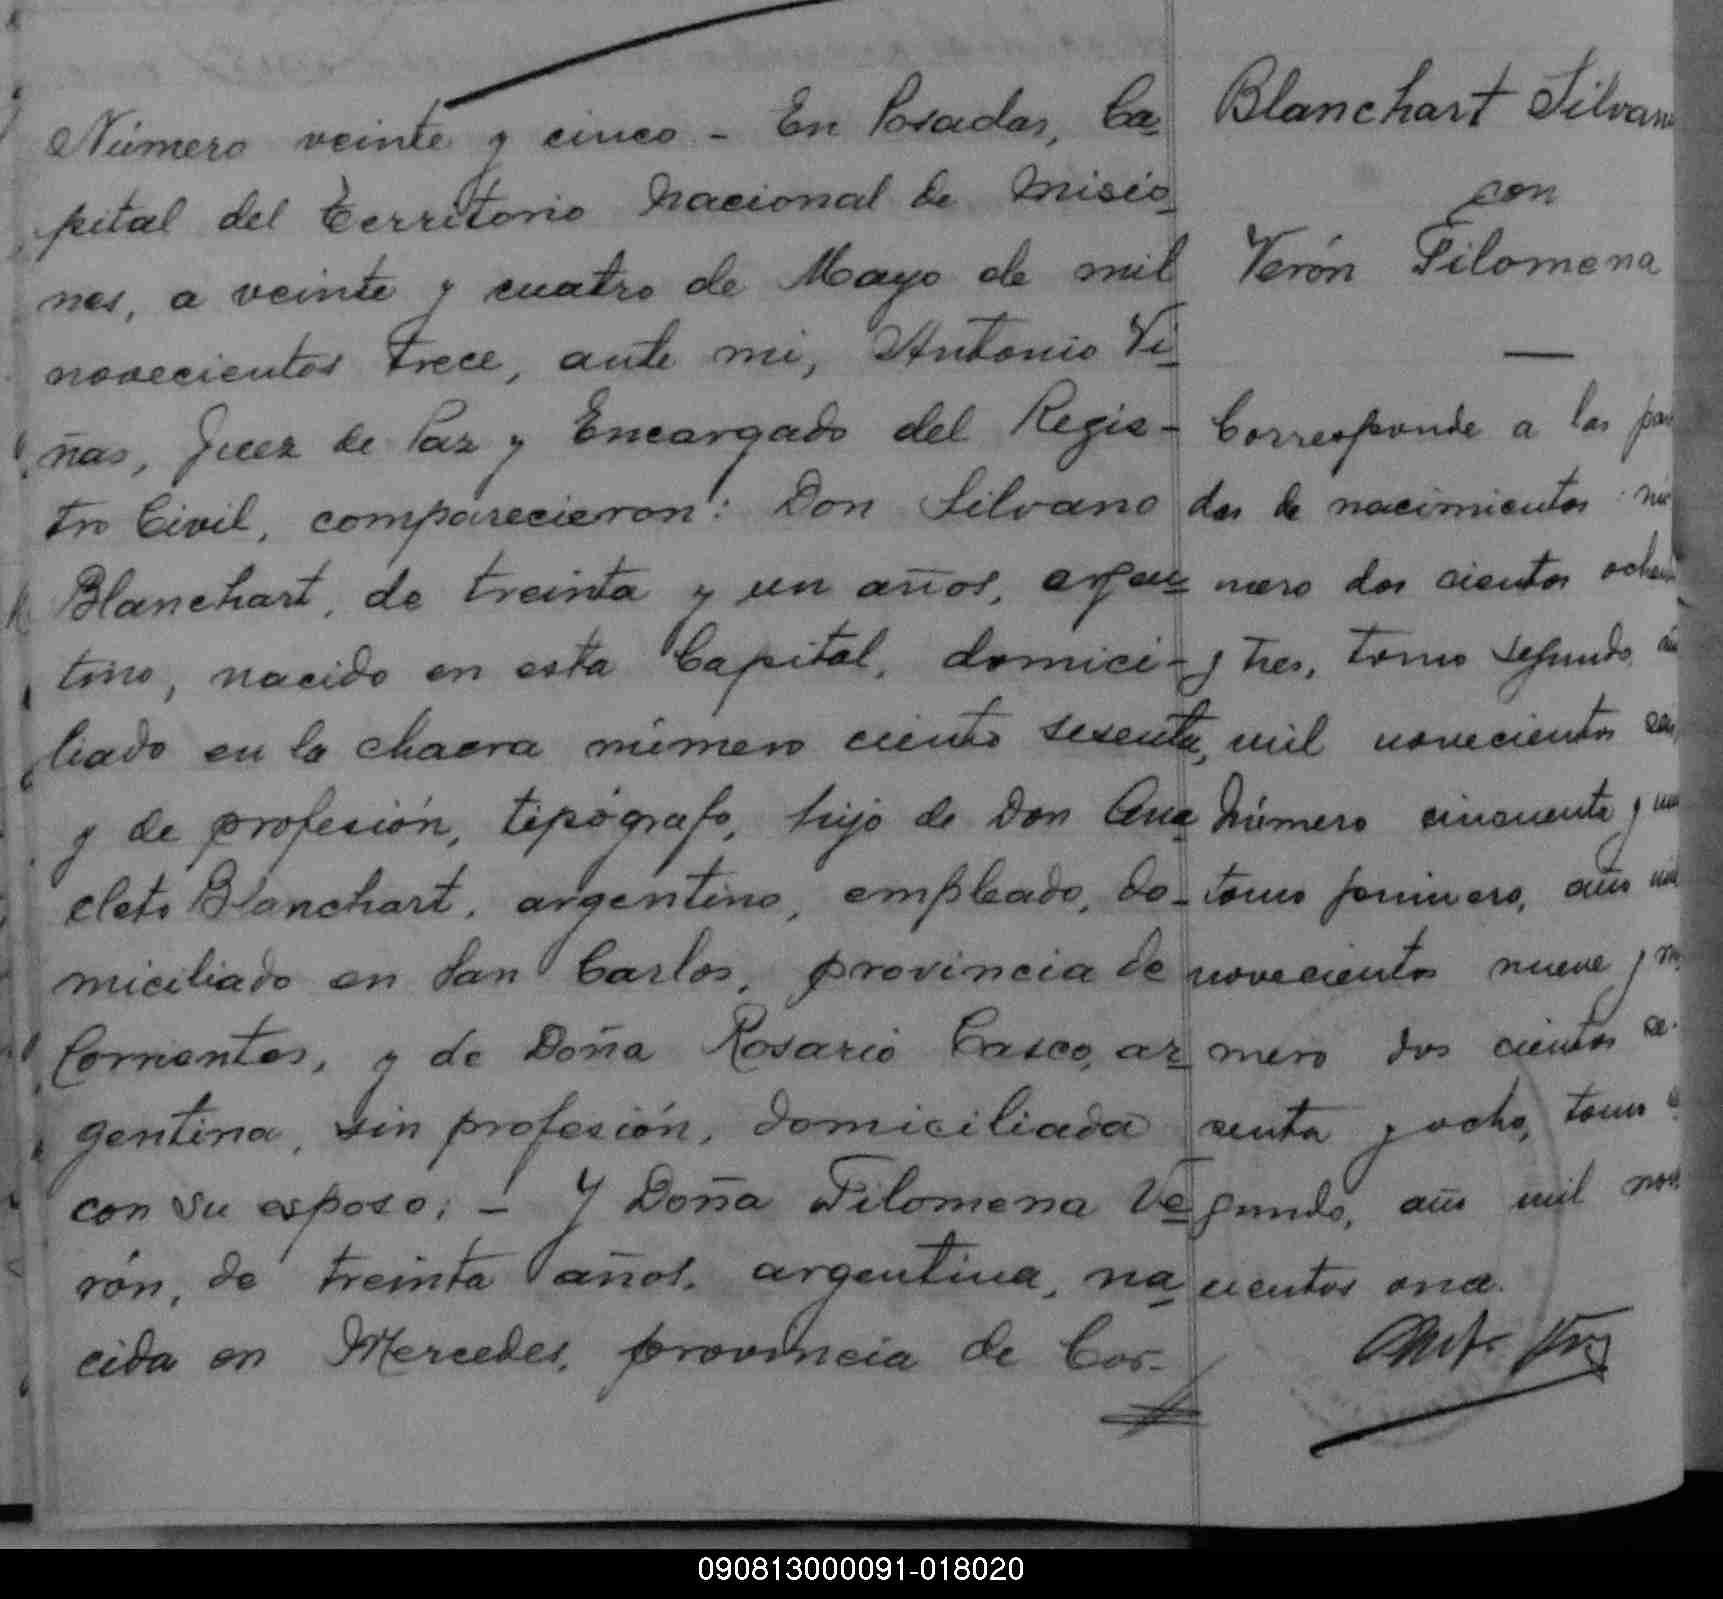 Número veinte y cinco - En Posadas, Ca-
pital del Territorio Nacional de Misio-
nes, a veinte y cuatro de Mayo de mil
novecientos trece, ante mi, Antonio Vi-
ñas, Juez de Paz y Encargado del Regis-
tro Civil, comparecieron: Don Silvano
Blanchart, de treinta y un años, argen-
tino, nacido en esta Capital, domici-
liado en la chacra número ciento sesenta,
y de profesión, tipógrafo, hijo de Don Ana-
cleto Blanchart, argentino, empleado, do-
miciliado en San Carlos, provincia de
Corrientes, y de Doña Rosario Casco, ar-
gentina, sin profesión, domiciliada
con su esposo; - Y Doña Filomena Ve-
rón, de treinta años, argentina, na-
cida en Mercedes, provincia de Cor-
Blanchart Silvano
con
Verón Filomena
Corresponde a las
das de nacimientos nú
mero dos cientos
y tres, tomo segundo,
mil novecientos
Número cincuenta y
tomo primero, año mil
novecientos nueve y
mero dos cientos
senta y ocho, tomo
gundo, año mil
cientos once.
090813000091-018020